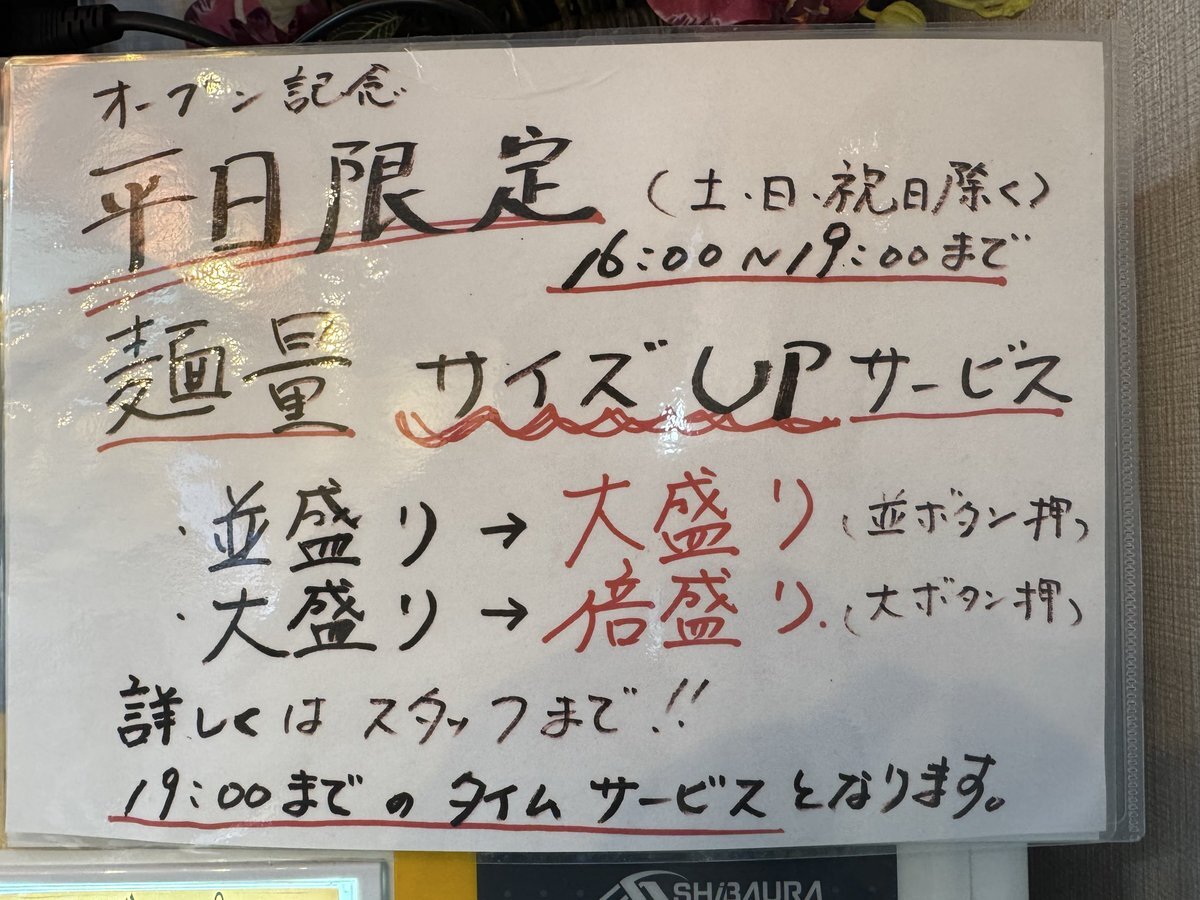 オープン記念
平日限定 (土・日・祝日除く)
16:00~19:00まで
麺量 サイズUPサービス
・並盛り→大盛り(並ボタン押)
・大盛り→倍盛り.(大ボタン押)
詳しくはスタッフまで!!
19:00までのタイムサービスとなります。
SHiBAURA